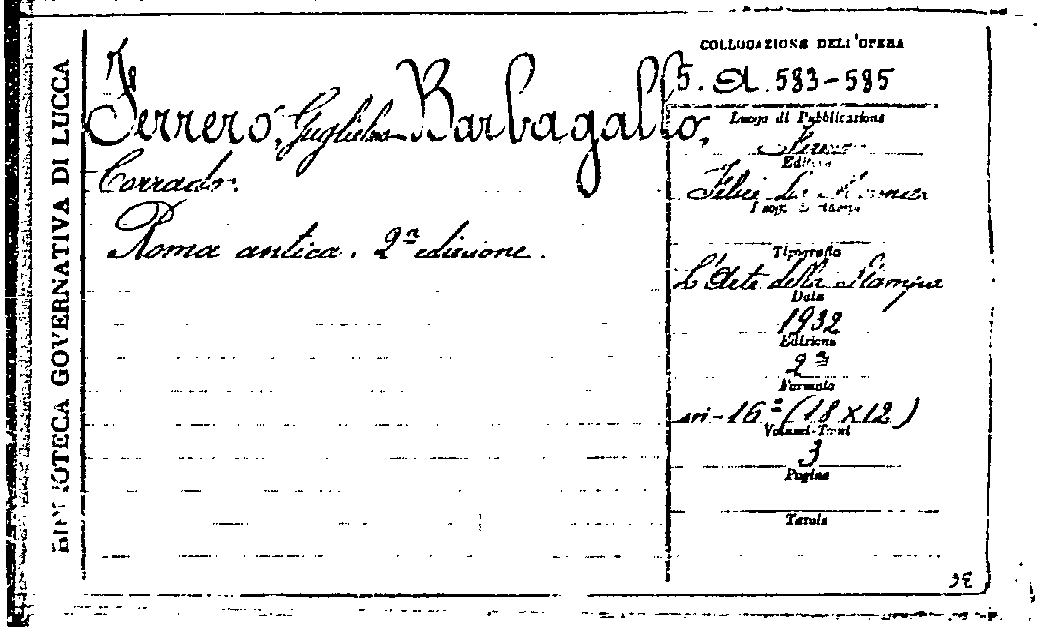 BIBLIOTECA GOVERNATIVA DI LUCCA
Ferrero, Guglielmo Barbagallo,
Corrado.
Roma antica. 2ª edizione.
COLLOCAZIONE DELL'OPERA
5. A. 583-585
Luogo di Pubblicazione
Firenze
Editore
Felice Le Monnier
Luogo di stampa
Tipografia
L'Arte della Stampa
Data
1932
Edizione
2ª
Formato
in-16º (18 X 12)
Volumi-Tomi
3
Pagine
Tavole